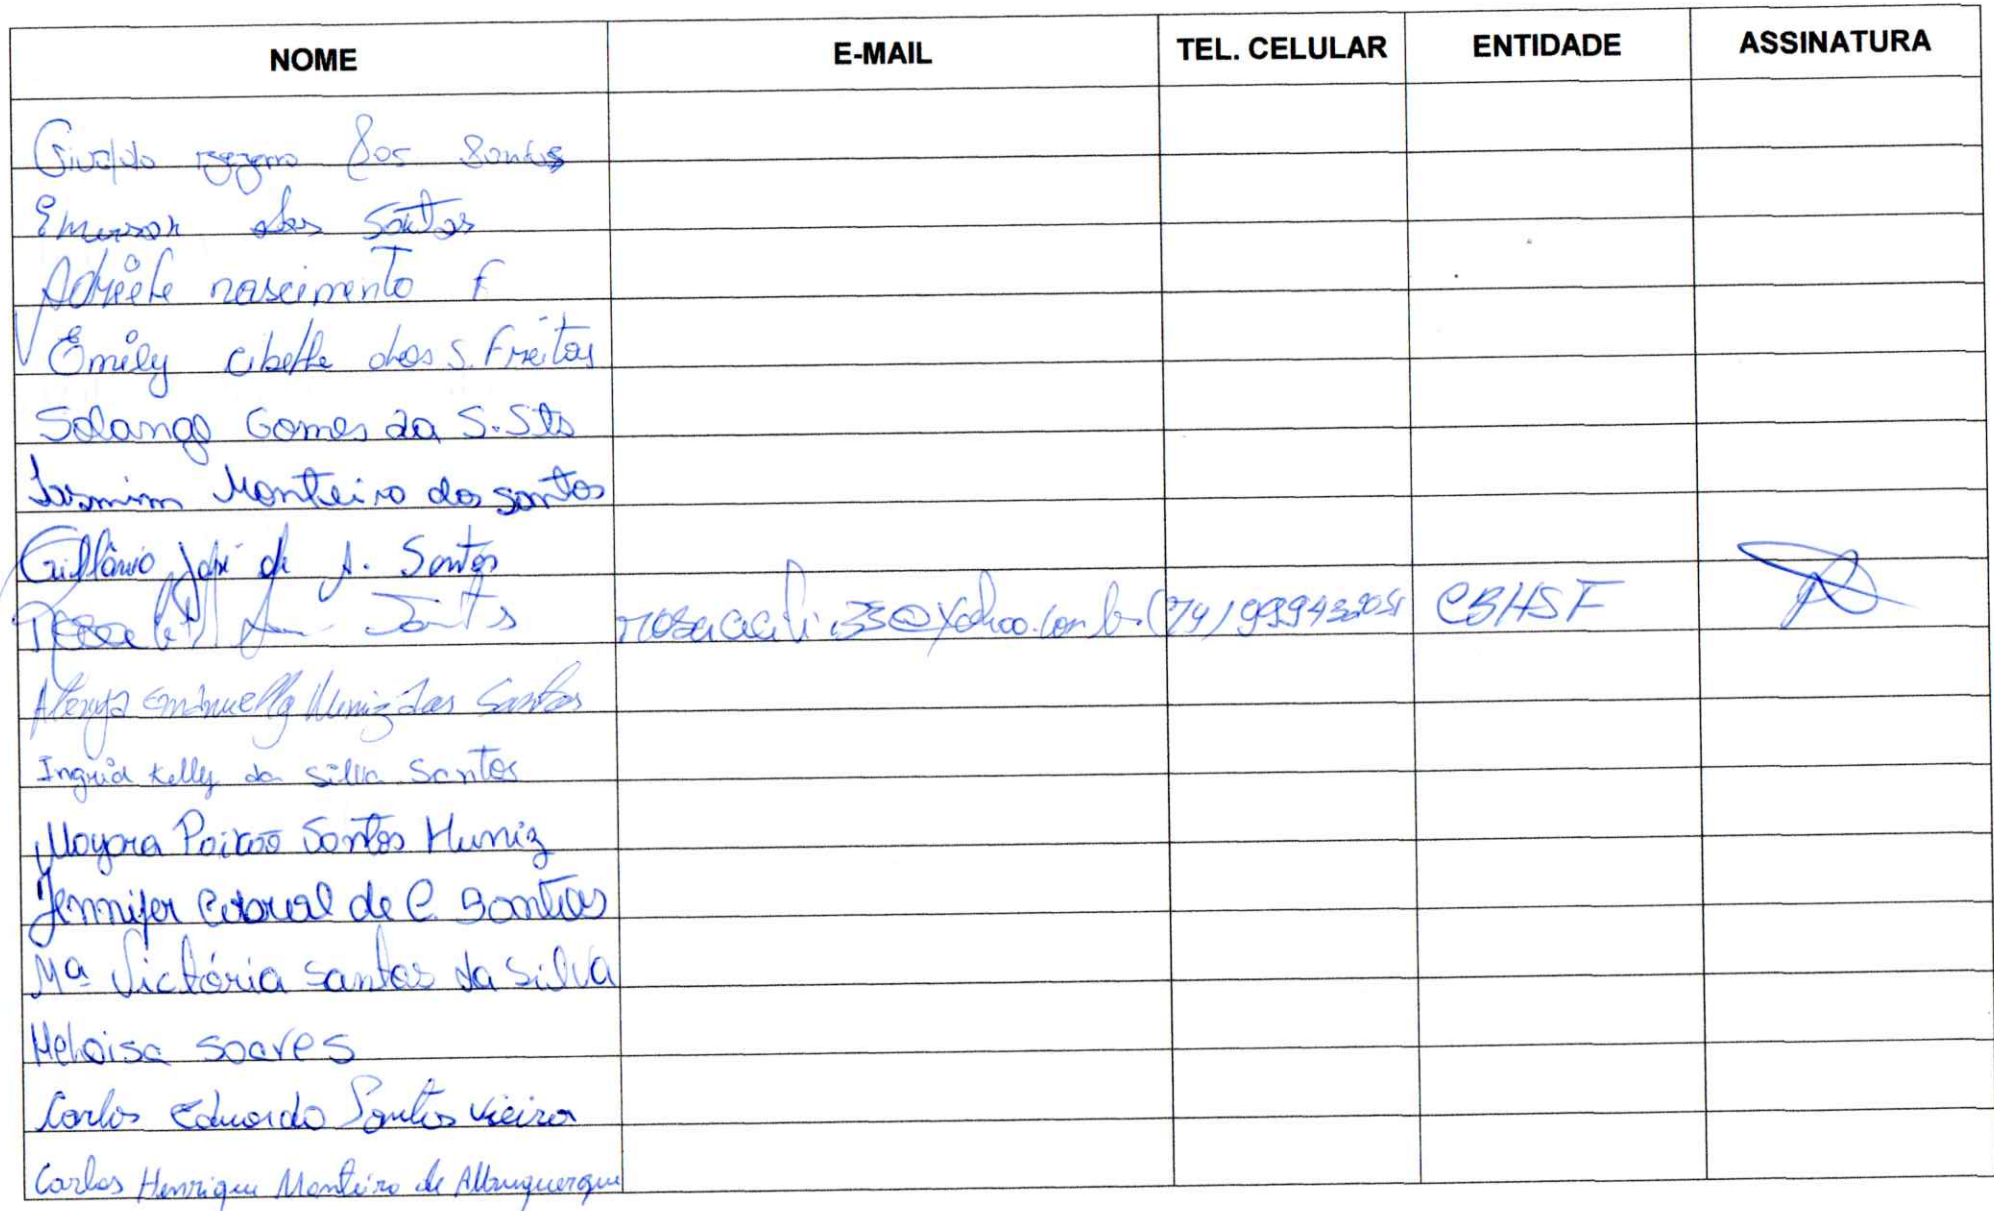 NOME E-MAIL TEL. CELULAR ENTIDADE ASSINATURA
dos Santos
Emerson dos Santos
nascimento F
Emily Cibelle dos S. Freitas
Solange Gomes da S. Sts
Iasmim Monteiro dos santos
José de A. Santos
Santos CBHSF
Emanuelly Muniz dos Santos
Ingrid Kelly da Silva Santos
Mayara Paixão Santos Muniz
Jennifer Cabral de C. Santos
Mª Victória santos da Silva
Heloisa soares
Carlos Eduardo Santos Vieira
Carlos Henrique Monteiro de Albuquerque